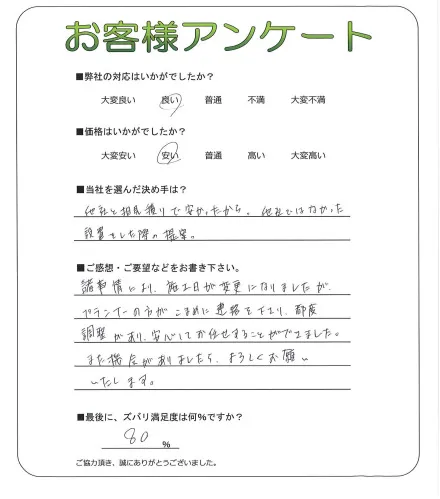 お客様アンケート
■弊社の対応はいかがでしたか?
大変良い 良い 普通 不満 大変不満
■価格はいかがでしたか?
大変安い 安い 普通 高い 大変高い
■当社を選んだ決め手は?
他社と相見積りで安かったから。他社ではなかった
設置をした際の提案。
■ご感想・ご要望などをお書き下さい。
諸事情により、施工日が変更になりましたが、
プランナーの方がこまめに連絡を下さり、都度
調整があり、安心してお任せすることができました。
また機会がありましたら、よろしくお願い
いたします。
■最後に、ズバリ満足度は何%ですか?
80 %
ご協力頂き、誠にありがとうございました。